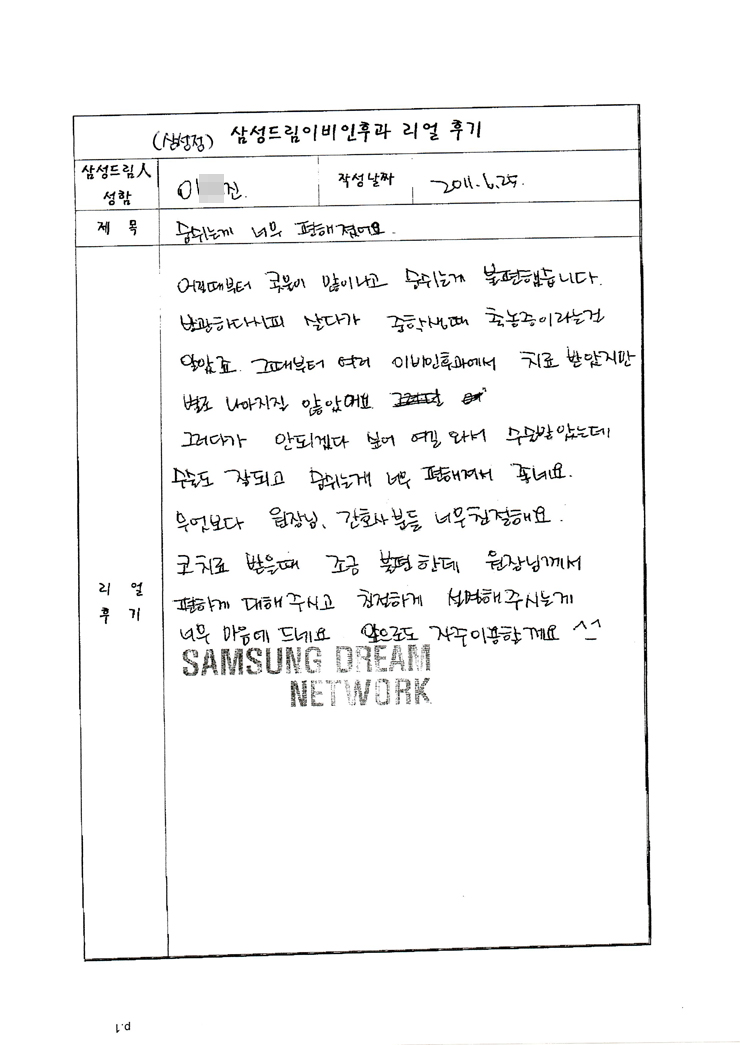 (삼성점) 삼성드림이비인후과 리얼 후기
삼성드림人 성함
이 진.
작성날짜
2011. 6. 25.
제 목
숨쉬는게 너무 편해졌어요.
리 얼 후 기
어릴때부터 콧물이 많이나고 숨쉬는게 불편했습니다.
방관하다시피 살다가 중학생때 축농증이라는걸
알았죠. 그때부터 여러 이비인후과에서 치료 받았지만
별로 나아지질 않았어요.
그러다가 안되겠다 싶어 여길 와서 수술받았는데
수술도 잘되고 숨쉬는게 너무 편해져서 좋네요.
무엇보다 원장님, 간호사분들 너무친절해요.
코치료 받을때 조금 불편한데 원장님께서
편하게 대해주시고 친절하게 설명해주시는게
너무 마음에 드네요 앞으로도 자주이용할게요 ^^
SAMSUNG DREAM
NETWORK
p.1